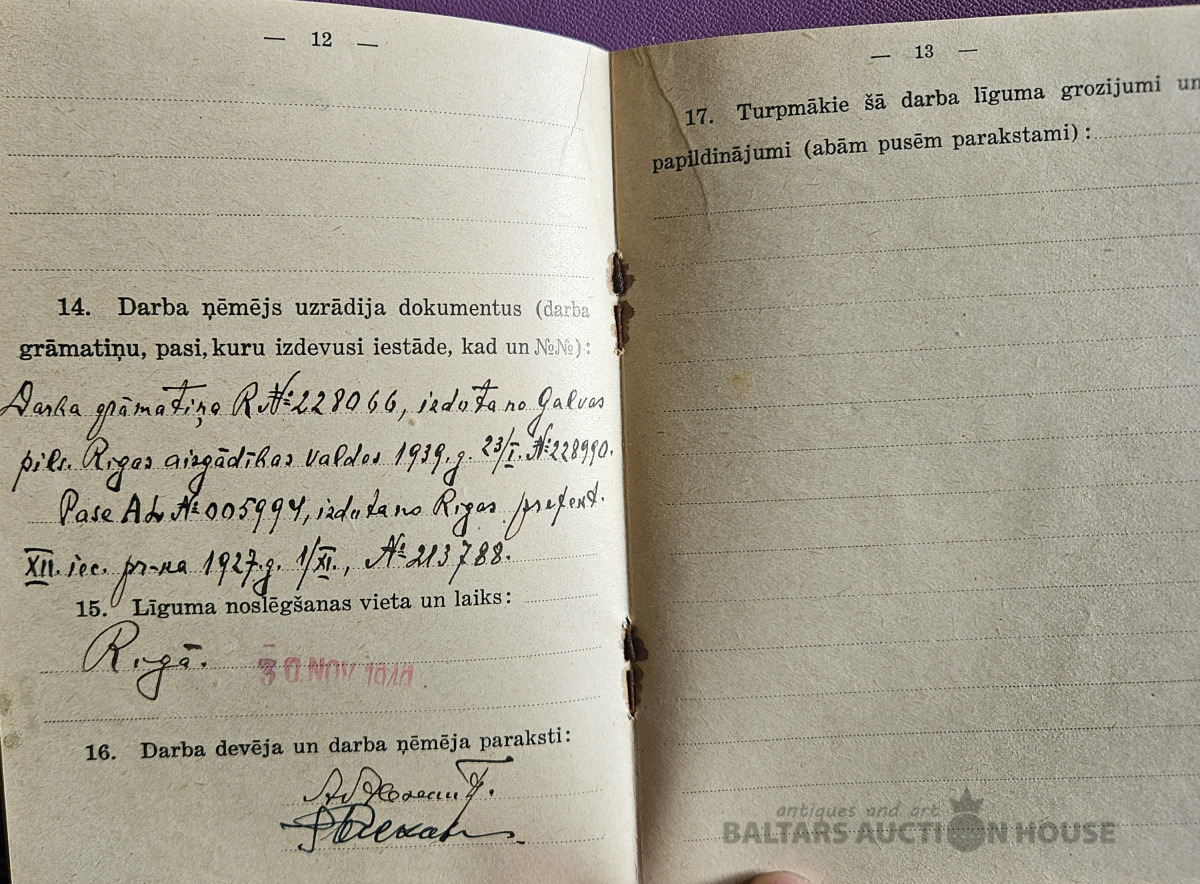 — 12 —
14. Darba ņēmējs uzrādija dokumentus (darba
grāmatiņu, pasi, kuru izdevusi iestāde, kad un №№):
Darba grāmatiņa R №228066, izdota no Galvas
pils. Rīgas aizgādības valdes 1939.g. 23/I. №228990.
Pase AL №005994, izdota no Rīgas prefekt.
XII. iec. pr-ka 1927.g. 1/XI., № 213788.
15. Līguma noslēgšanas vieta un laiks:
Rīgā. 30 NOV 1940
16. Darba devēja un darba ņēmēja paraksti:
— 13 —
17. Turpmākie šā darba līguma grozijumi un
papildinājumi (abām pusēm parakstami):
antiques and art
BALTARS AUCTION HOUSE